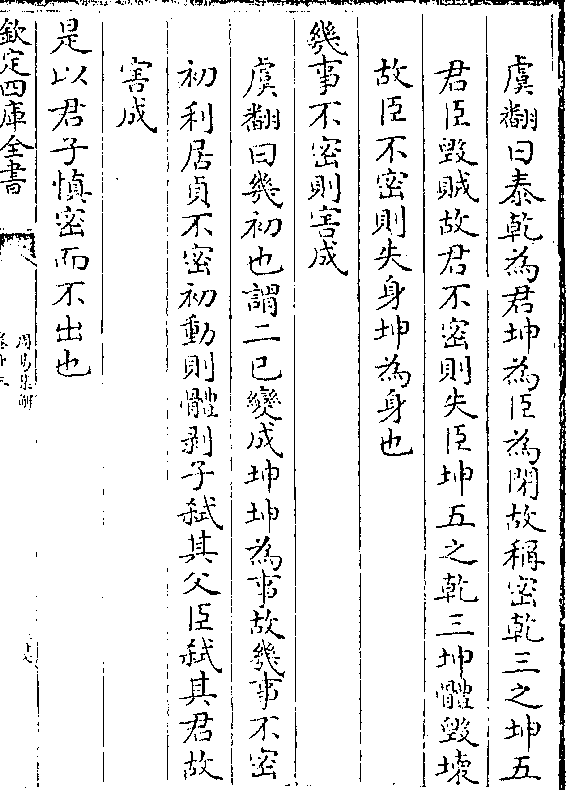 虞翻曰泰乾為君坤為臣為閉故稱密乾三之坤五
君臣毀賊故君不密則失臣坤五之乾三坤體毀壊
故臣不密則失身坤為身也
幾事不密則害成
虞翻曰幾初也謂二已變成坤坤為事故幾事不密
初利居貞不密初動則體剥子弑其父臣弑其君故
害成
是以君子慎密而不出也
欽定四庫全書
周易集解